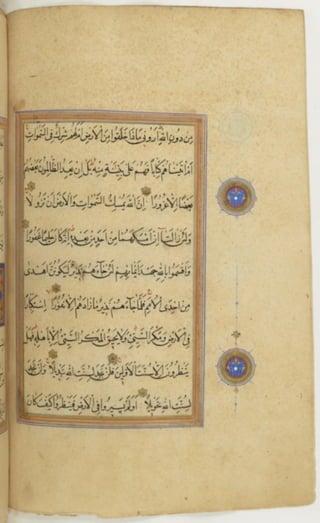 مِن دُونِ اللَّهِ أَرُونِي مَاذَا خَلَقُوا مِنَ الْأَرْضِ أَمْ لَهُمْ شِرْكٌ فِي السَّمَوَاتِ
أَمْ آتَيْنَاهُمْ كِتَابًا فَهُمْ عَلَى بَيِّنَةٍ مِنْهُ بَلْ إِنْ يَعِدُ الظَّالِمُونَ بَعْضُهُمْ
بَعْضًا إِلَّا غُرُورًا إِنَّ اللَّهَ يُمْسِكُ السَّمَوَاتِ وَالْأَرْضَ أَنْ تَزُولَا
وَلَئِنْ زَالَتَا إِنْ أَمْسَكَهُمَا مِنْ أَحَدٍ مِنْ بَعْدِهِ إِنَّهُ كَانَ حَلِيمًا غَفُورًا
وَأَقْسَمُوا بِاللَّهِ جَهْدَ أَيْمَانِهِمْ لَئِنْ جَاءَهُمْ نَذِيرٌ لَيَكُونُنَّ أَهْدَى
مِنْ إِحْدَى الْأُمَمِ فَلَمَّا جَاءَهُمْ نَذِيرٌ مَا زَادَهُمْ إِلَّا نُفُورًا اسْتِكْبَارًا
فِي الْأَرْضِ وَمَكْرَ السَّيِّئِ وَلَا يَحِيقُ الْمَكْرُ السَّيِّئُ إِلَّا بِأَهْلِهِ فَهَلْ
يَنْظُرُونَ إِلَّا سُنَّتَ الْأَوَّلِينَ فَلَنْ تَجِدَ لِسُنَّتِ اللَّهِ تَبْدِيلًا وَلَنْ تَجِدَ
لِسُنَّتِ اللَّهِ تَحْوِيلًا أَوَلَمْ يَسِيرُوا فِي الْأَرْضِ فَيَنْظُرُوا كَيْفَ كَانَ